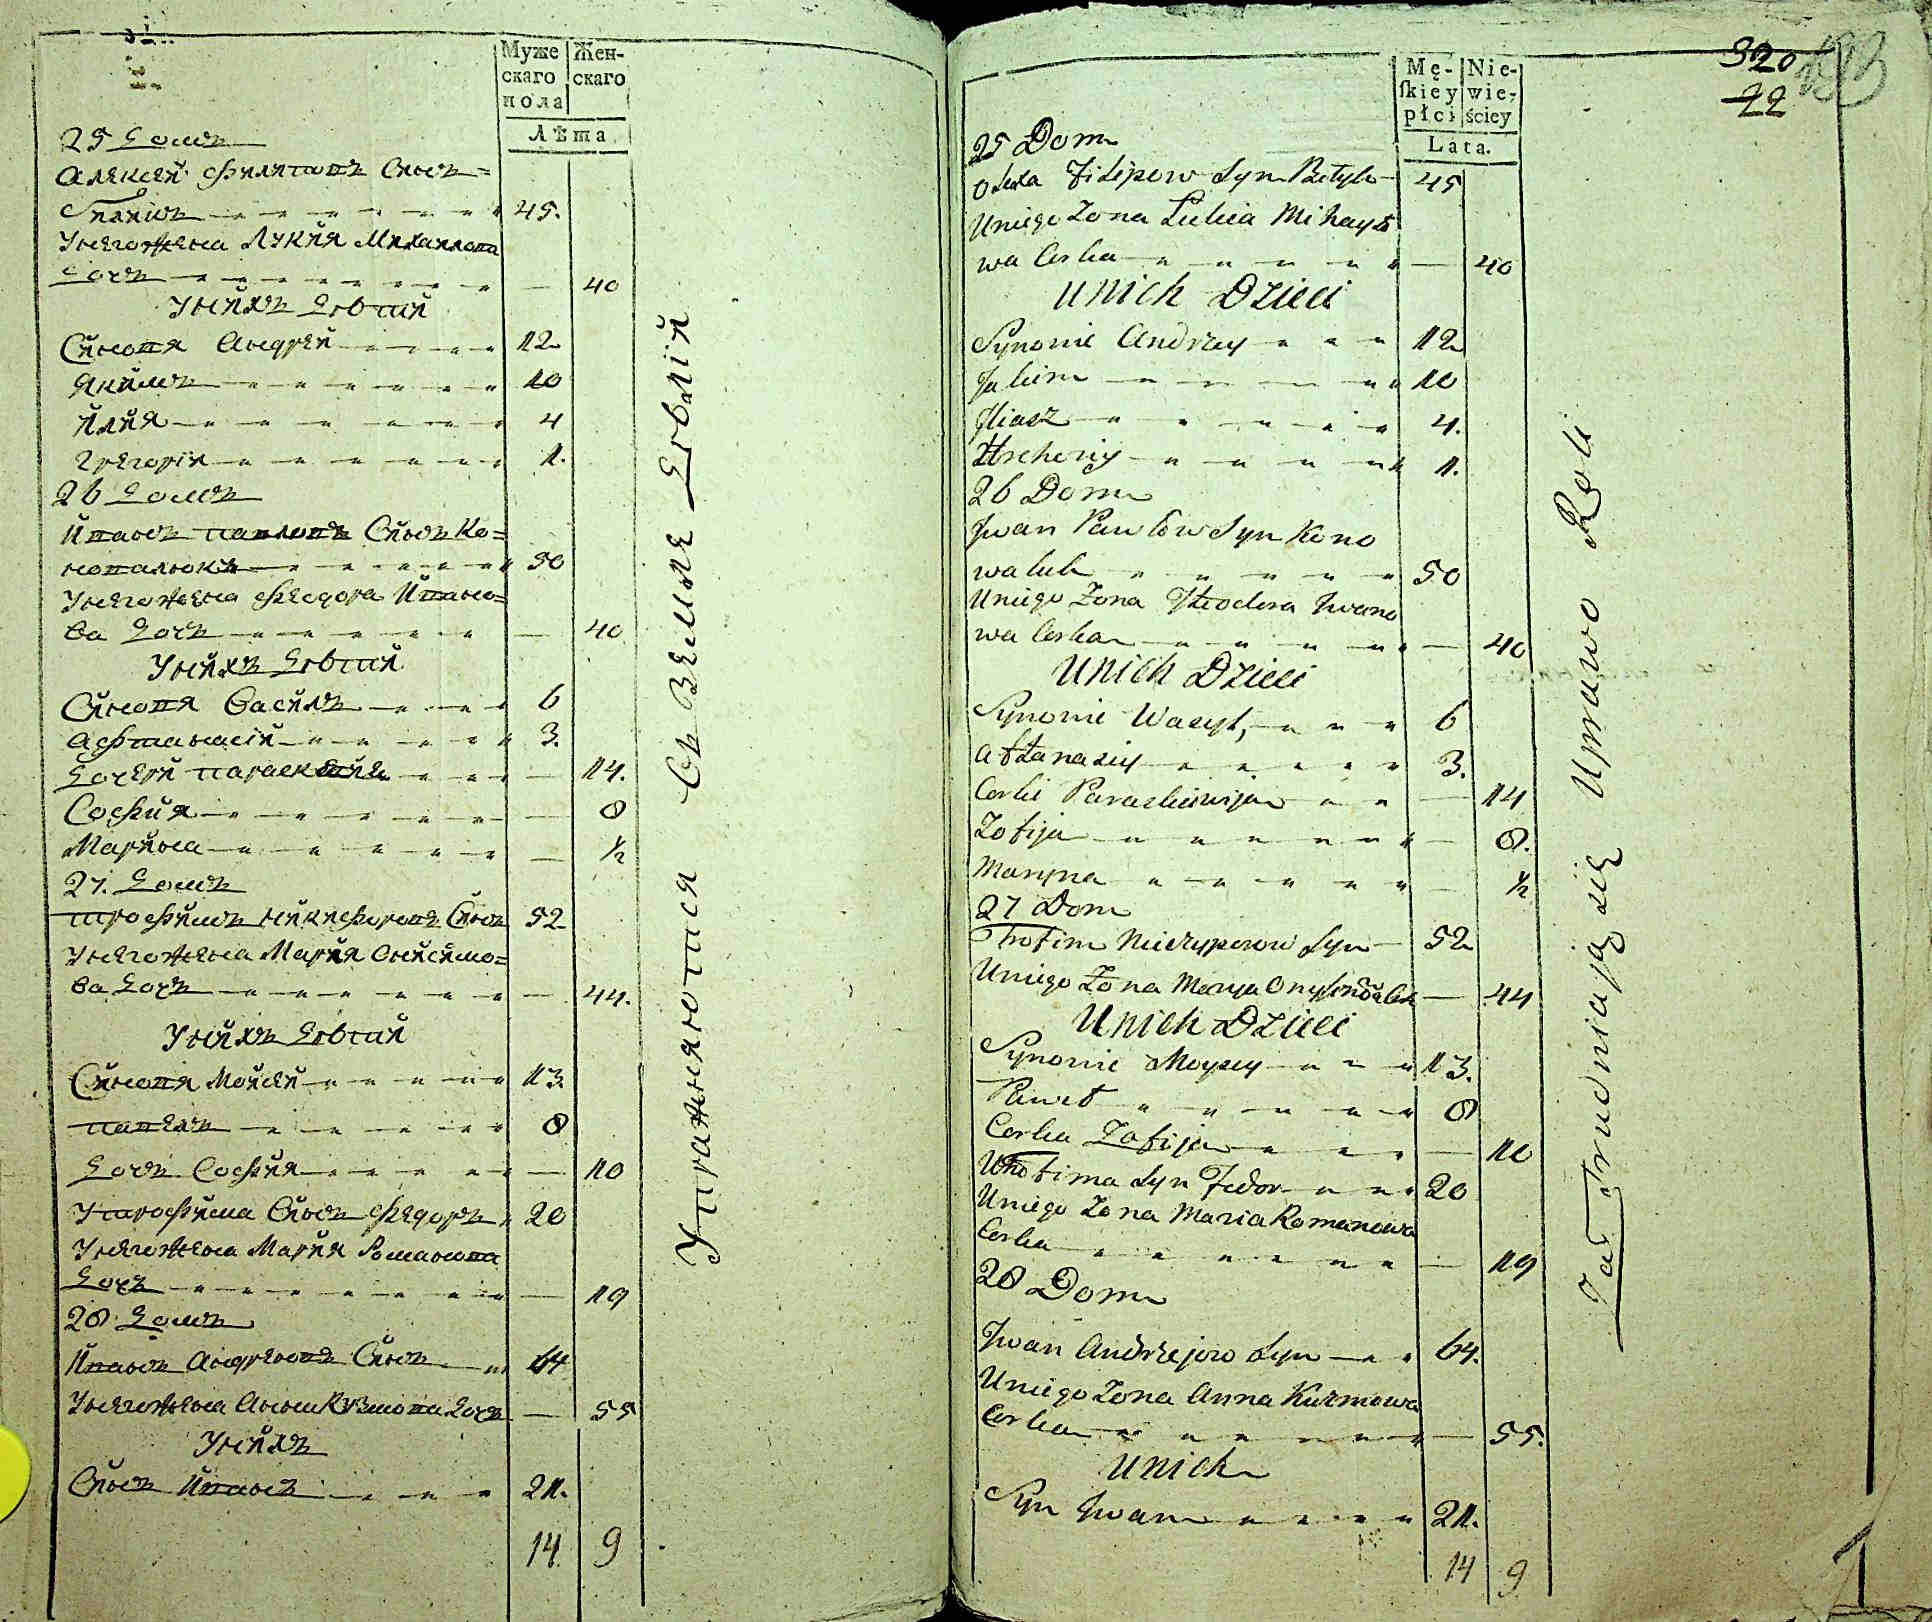 Муже Жен-
скаго скаго
пола
Лѣта
25 Домъ
Алексей Филиповъ Сынъ
45.
Унего жена Лукия Михаилова
дочь 40
Унихъ Дѣти
Синовя Андрей 12
Якимъ 10
Илия 4
Григорій 1.
26 Домъ
Иванъ Павловъ Сынъ Ко=
новалюкъ 50
Унего жена Феодора Ивано=
ва Дочь 40
Унихъ Дѣти
Синовя Василь 6
Афтанасій 3.
Дочери Параскевия 14.
София 8
Марина 1/2
27. Домъ
Трофимъ Никифоровъ Синъ 52
Унего жена Мария Онисимо=
ва Дочь 44.
Унихъ Дѣти
Синовя Мойсей 13.
Павелъ 8
Дочь София 10
Утрофима Синъ Федоръ 20
Унего жена Мария Романова
Дочь 19
28 Домъ
Иванъ Андреевъ Синъ 64
Унего жена Анна Кузмова Дочь 55
Унихъ
Синъ Иванъ 21.
14 9
Упражняются Въ Земле Дѣлій
320
22
Mę- Nie-
ſkiey wie-
płci ściey
Lata.
25 Dom
Olexa Filipow Syn 45
Uniego Zona Lukia Mihayło
wa Corka 40
Unich Dzieci
Synowie Andrzey 12
Jakim 10
Iliasz 4.
Hrehory 1.
26 Dom
Jwan Pawłow Syn Kono
waluk 50
Uniego Zona Fteodora Jwano
wa Corka 40
Unich Dzieci
Synowie Wasyl, 6
Aftanasiy 3.
Corki Paraskiewija 14
Zofija 8.
Maryna 1/2
27 Dom
Trofim Niczyporow Syn 52
Uniego Zona Marya 44
Unich Dzieci
Synowie Moysey 13.
Paweł 8
Corka Zofija 10
Utrofima Syn Fedor 20
Uniego Zona Maria Romanowa
Corka 19
28 Dom
Jwan Andrzejow Syn 64.
Uniego Zona Anna Kuzmowa
Corka 55.
Unich
Syn Jwan 21.
14 9
Zatrudniają się Uprawo Roli